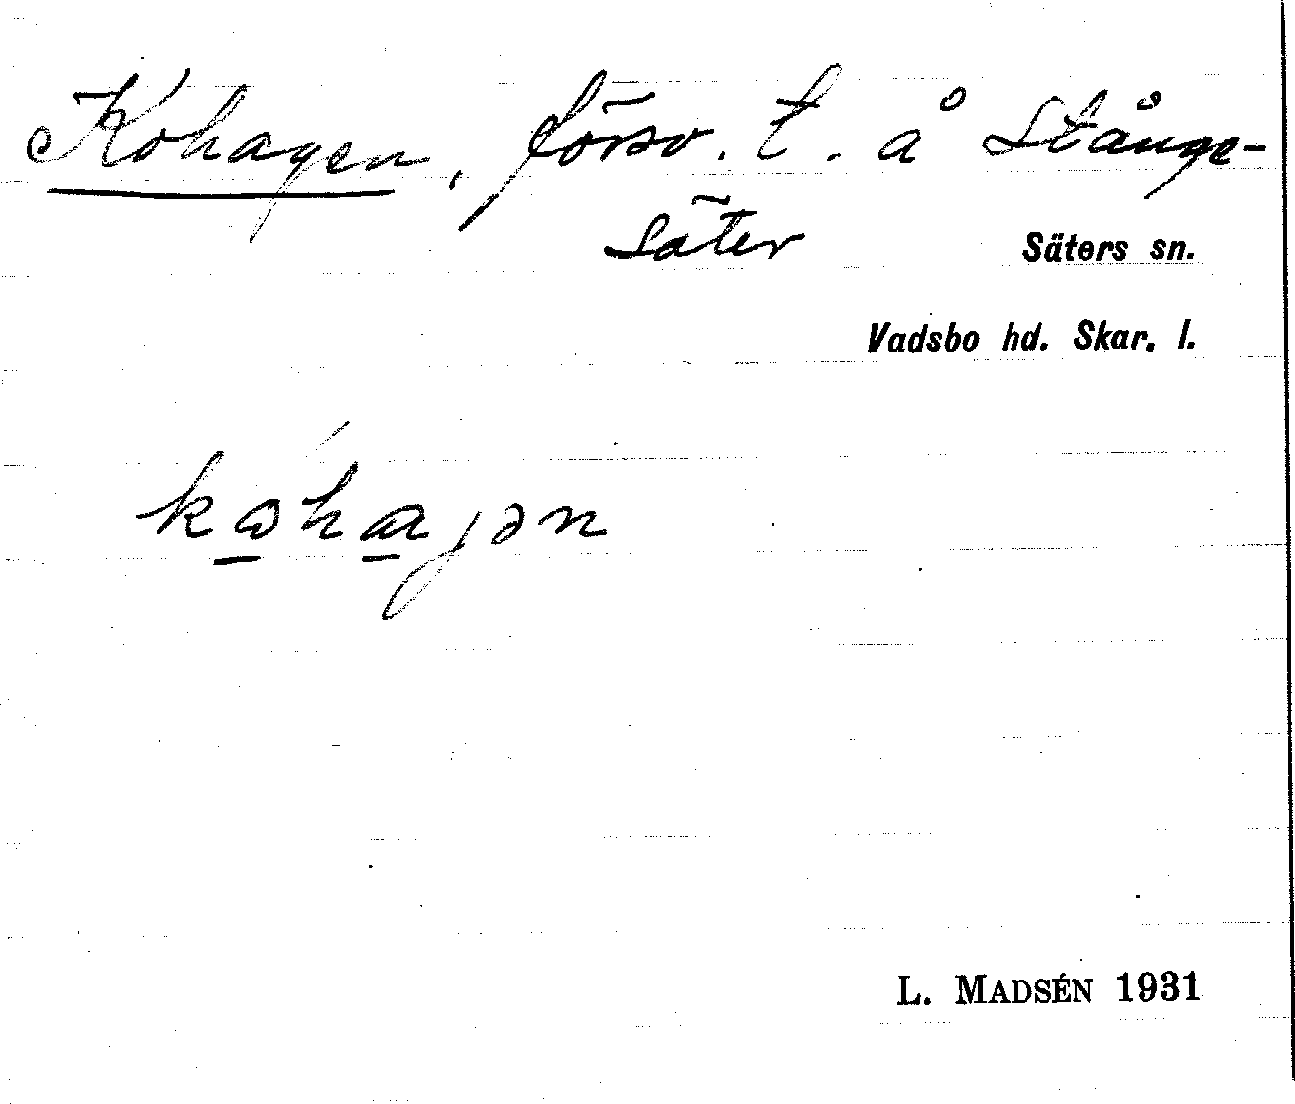 Kohagen, försv. t. å Stånge-
säter
Säters sn.
Vadsbo hd. Skar. l.
kωhagən
L. MADSÉN 1931